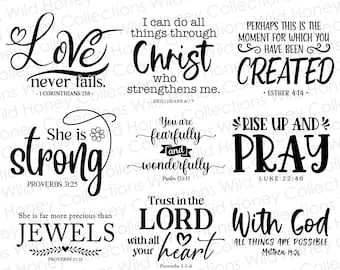 Love
never fails.
1 CORINTHIANS 13:8
I can do all
things through
Christ
who
strengthens me.
PERHAPS THIS IS THE
MOMENT FOR WHICH YOU
HAVE BEEN
CREATED
ESTHER 4:14
She is
strong
PROVERBS 31:25
You are
fearfully
and
wonderfully
Psalm 139:14
RISE UP AND
PRAY
LUKE 22:46
She is far more precious than
JEWELS
PROVERBS 31:10
Trust in the
LORD
with all
your heart
Proverbs 3:5-6
With God
ALL THINGS ARE POSSIBLE
Matthew 19:26
Wild Honey Collections